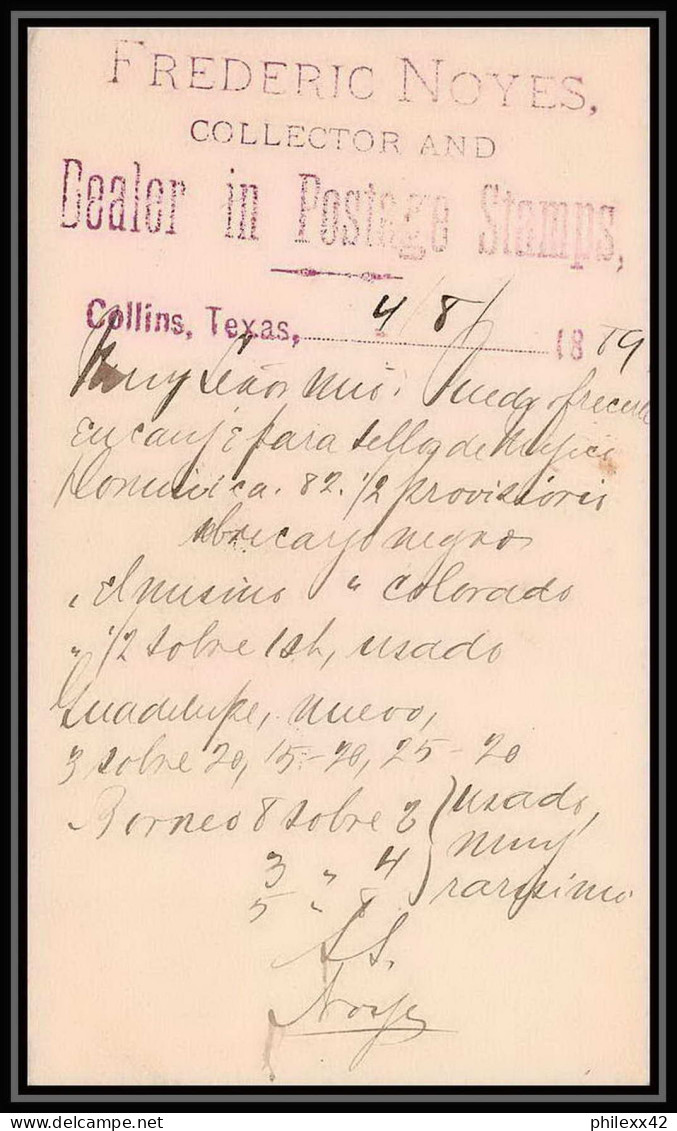 FREDERIC NOYES,
COLLECTOR AND
Dealer in Postage Stamps,
Collins, Texas, 4/8/ 1889
Muy Señor mio. Puedo ofrecerle
en canje para sellos de
Dominica. 82. 1/2 provissorio
negro
" El mismo " colorado
" 1/2 sobre 1sh, usado
Guadelupe, nuevo,
3 sobre 20, 15-20, 25-20
Borneo 8 sobre 2 } usado,
3 " 4 muy
5 " 8 rarissimo
S.S.
Noyes
philexx42